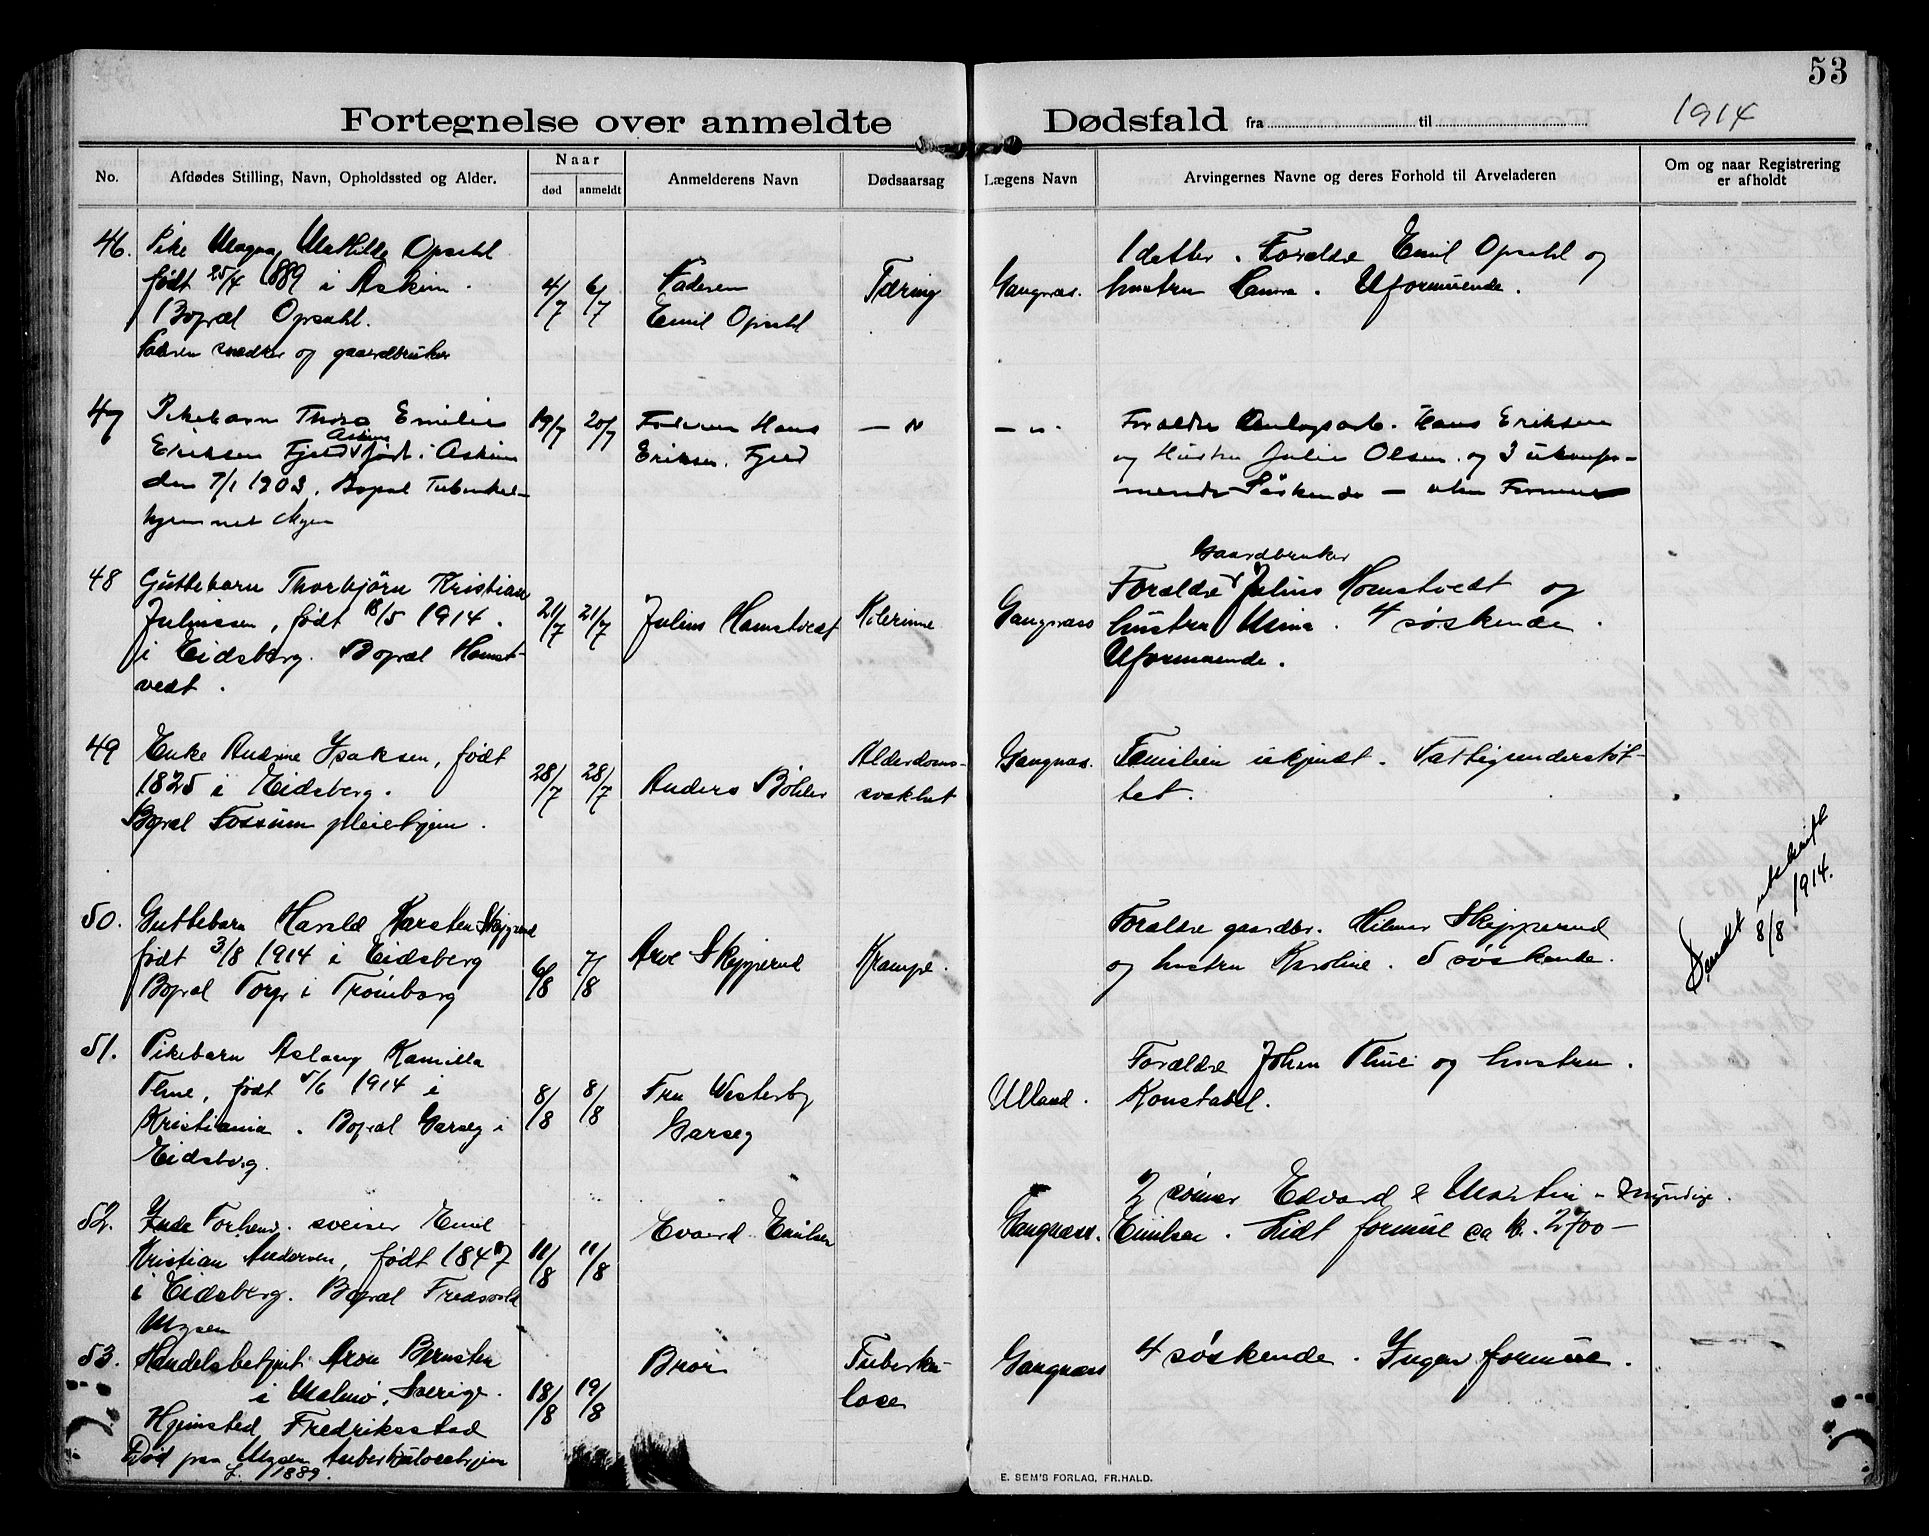 53
Fortegnelse over anmeldte Dødsfald fra til 1914
No. Afdødes Stilling, Navn, Opholdssted og Alder. Naar død anmeldt Anmelderens Navn Dødsaarsag Lægens Navn Arvingernes Navne og deres Forhold til Arveladeren Om og naar Registrering er afholdt
46. Pike Magna Mathilde Opsahl
født 25/4 1889 i Askim.
Bopæl Opsahl.
Faderen snedker og gaardbruker
4/7 6/7
Faderen
Emil Opsahl
Tæring
Gangnæs.
1 datter. Forældre Emil Opsahl og
hustru Hanna. Uformuende.
47 Pikebarn Thora Emilie
Eriksen Fjeld Askim født i Askim
den 7/1 1903. Bopæl Tuberkel-
hjemmet Mysen
19/7 20/7
Faderen Hans
Eriksen Fjeld
— " — " -
Forældre Anlægsarb. Hans Eriksen
og Hustru Julie Olsen og 3 ukonfir-
merede Søskende — uten Formue
48 Guttebarn Thorbjørn Kristian
Juliussen, født 18/5 1914.
i Eidsberg. Bopæl Homst-
vedt.
21/7 21/7
Julius Homstvedt
Kolerine
Gangnæss
Gaardbruker
Forældre Julius Homstvedt og
hustru Mina. 4 søskende.
Uformuende.
49 Enke Andrine Isaksen, født
1825 i Eidsberg.
Bopæl Fossum pleiehjem.
28/7 28/7
Anders Böhler
Alderdoms-
svakhet
Gangnæs.
Familien ukjendt. Fattigunderstøt-
tet.
50. Guttebarn Harald Karsten Skjpperud
født 3/8 1914 i Eidsberg
Bopæl Torp i Trømborg
6/8 7/8
Arve Skipperud
Krampe.
Forældre gaardbr. Hilmar Skipperud
og hustru Karoline. 5 søskende.
Sendt utskrift
8/8 1914.
51. Pikebarn Aslaug Kamilla
Thue, født 5/6 1914 i
Kristiania. Bopæl Garseg i
Eidsberg.
8/8 8/8
Fru Westerby
Garseg
Ulland.
Forældre Johan Thue og hustru.
Konstabel.
52. Forhenv. sveiser Emil
Kristian Andersen, født 1847
i Eidsberg. Bopæl Fredsvold
Mysen
11/8 11/8
Edvard Emilsen
Gangnæss.
2 sønner Edvard & Martin - myndige.
Emilsen. Lidt formue ca kr. 2700 —
53. Handelsbetjent Aron Bernsten
i Malmø, Sverige.
Hjemsted Fredriksstad
Død paa Mysen Tuberkulosehjem
f. 1889.
18/8 19/8
Bror
Tuberku-
lose
Gangnæss
4 søskende. Ingen formue.
E. SEM'S FORLAG, FR.HALD.